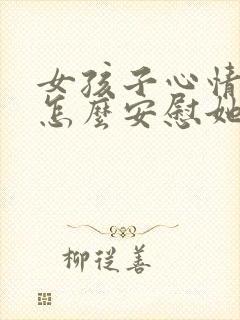 女孩子心情
怎麼安慰她
柳從善